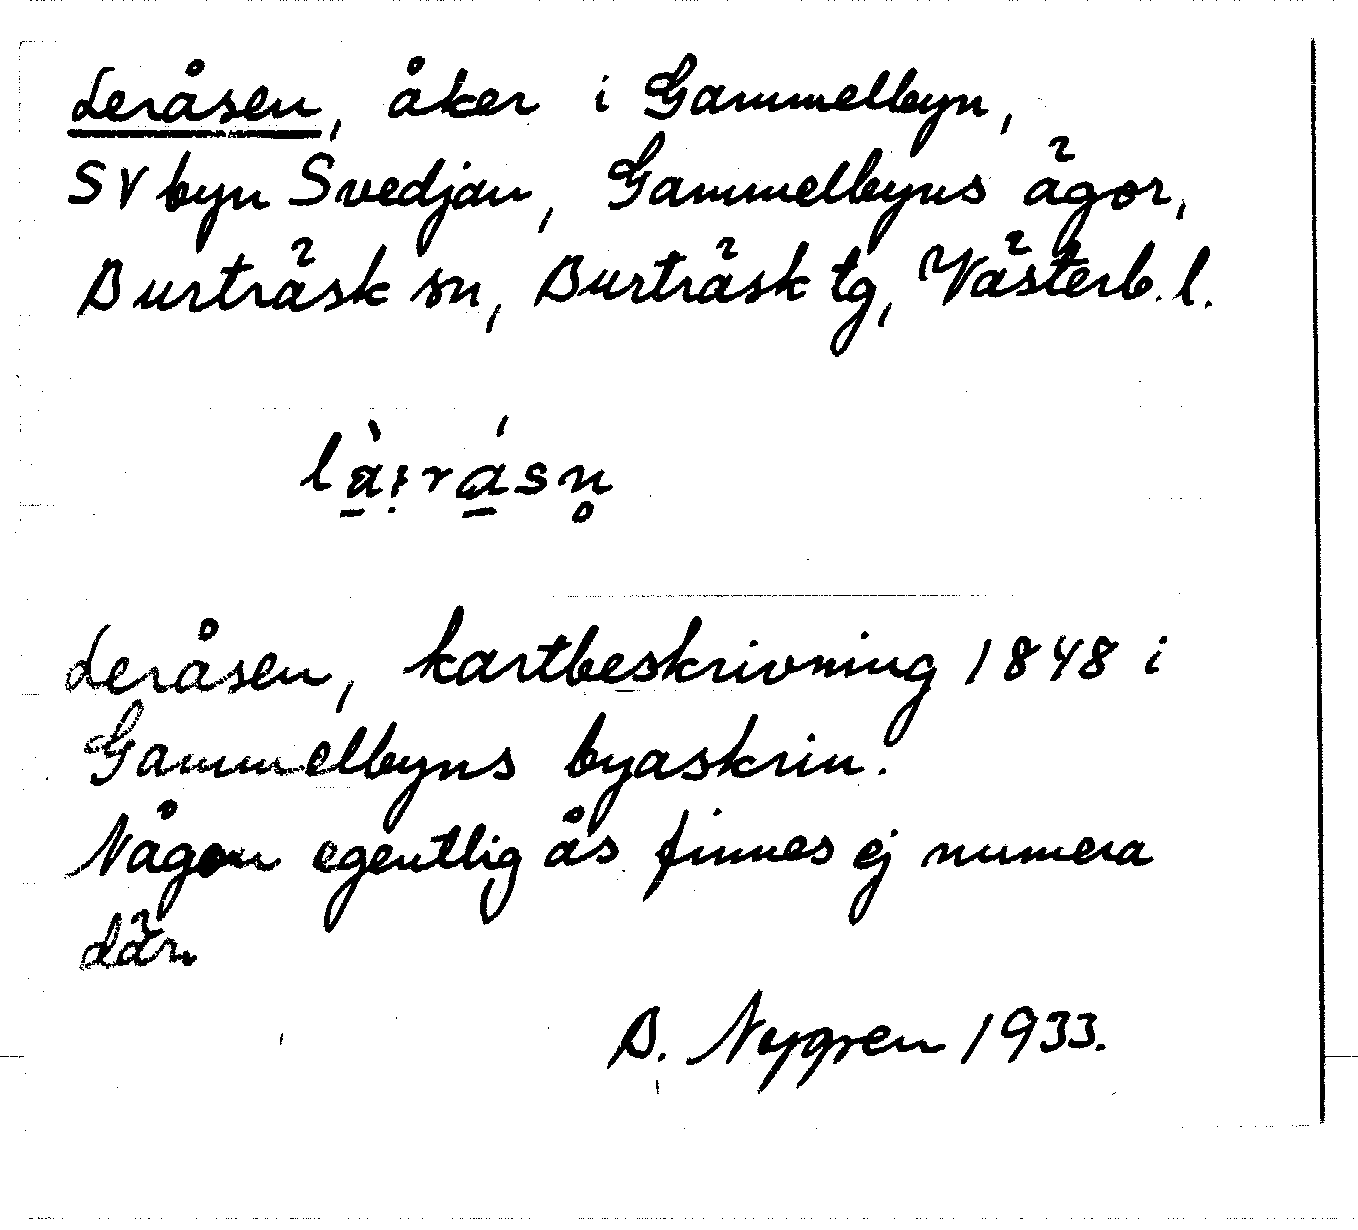 Leråsen, åker i Gammelbyn,
SV byn Svedjan, Gammelbyns ägor,
Burträsk sn, Burträsk tg, Västerb. l.
Leråsen, kartbeskrivning 1848 i
Gammelbyns byaskrin.
Någon egentlig ås finnes ej numera
där.
B. Nygren 1933.